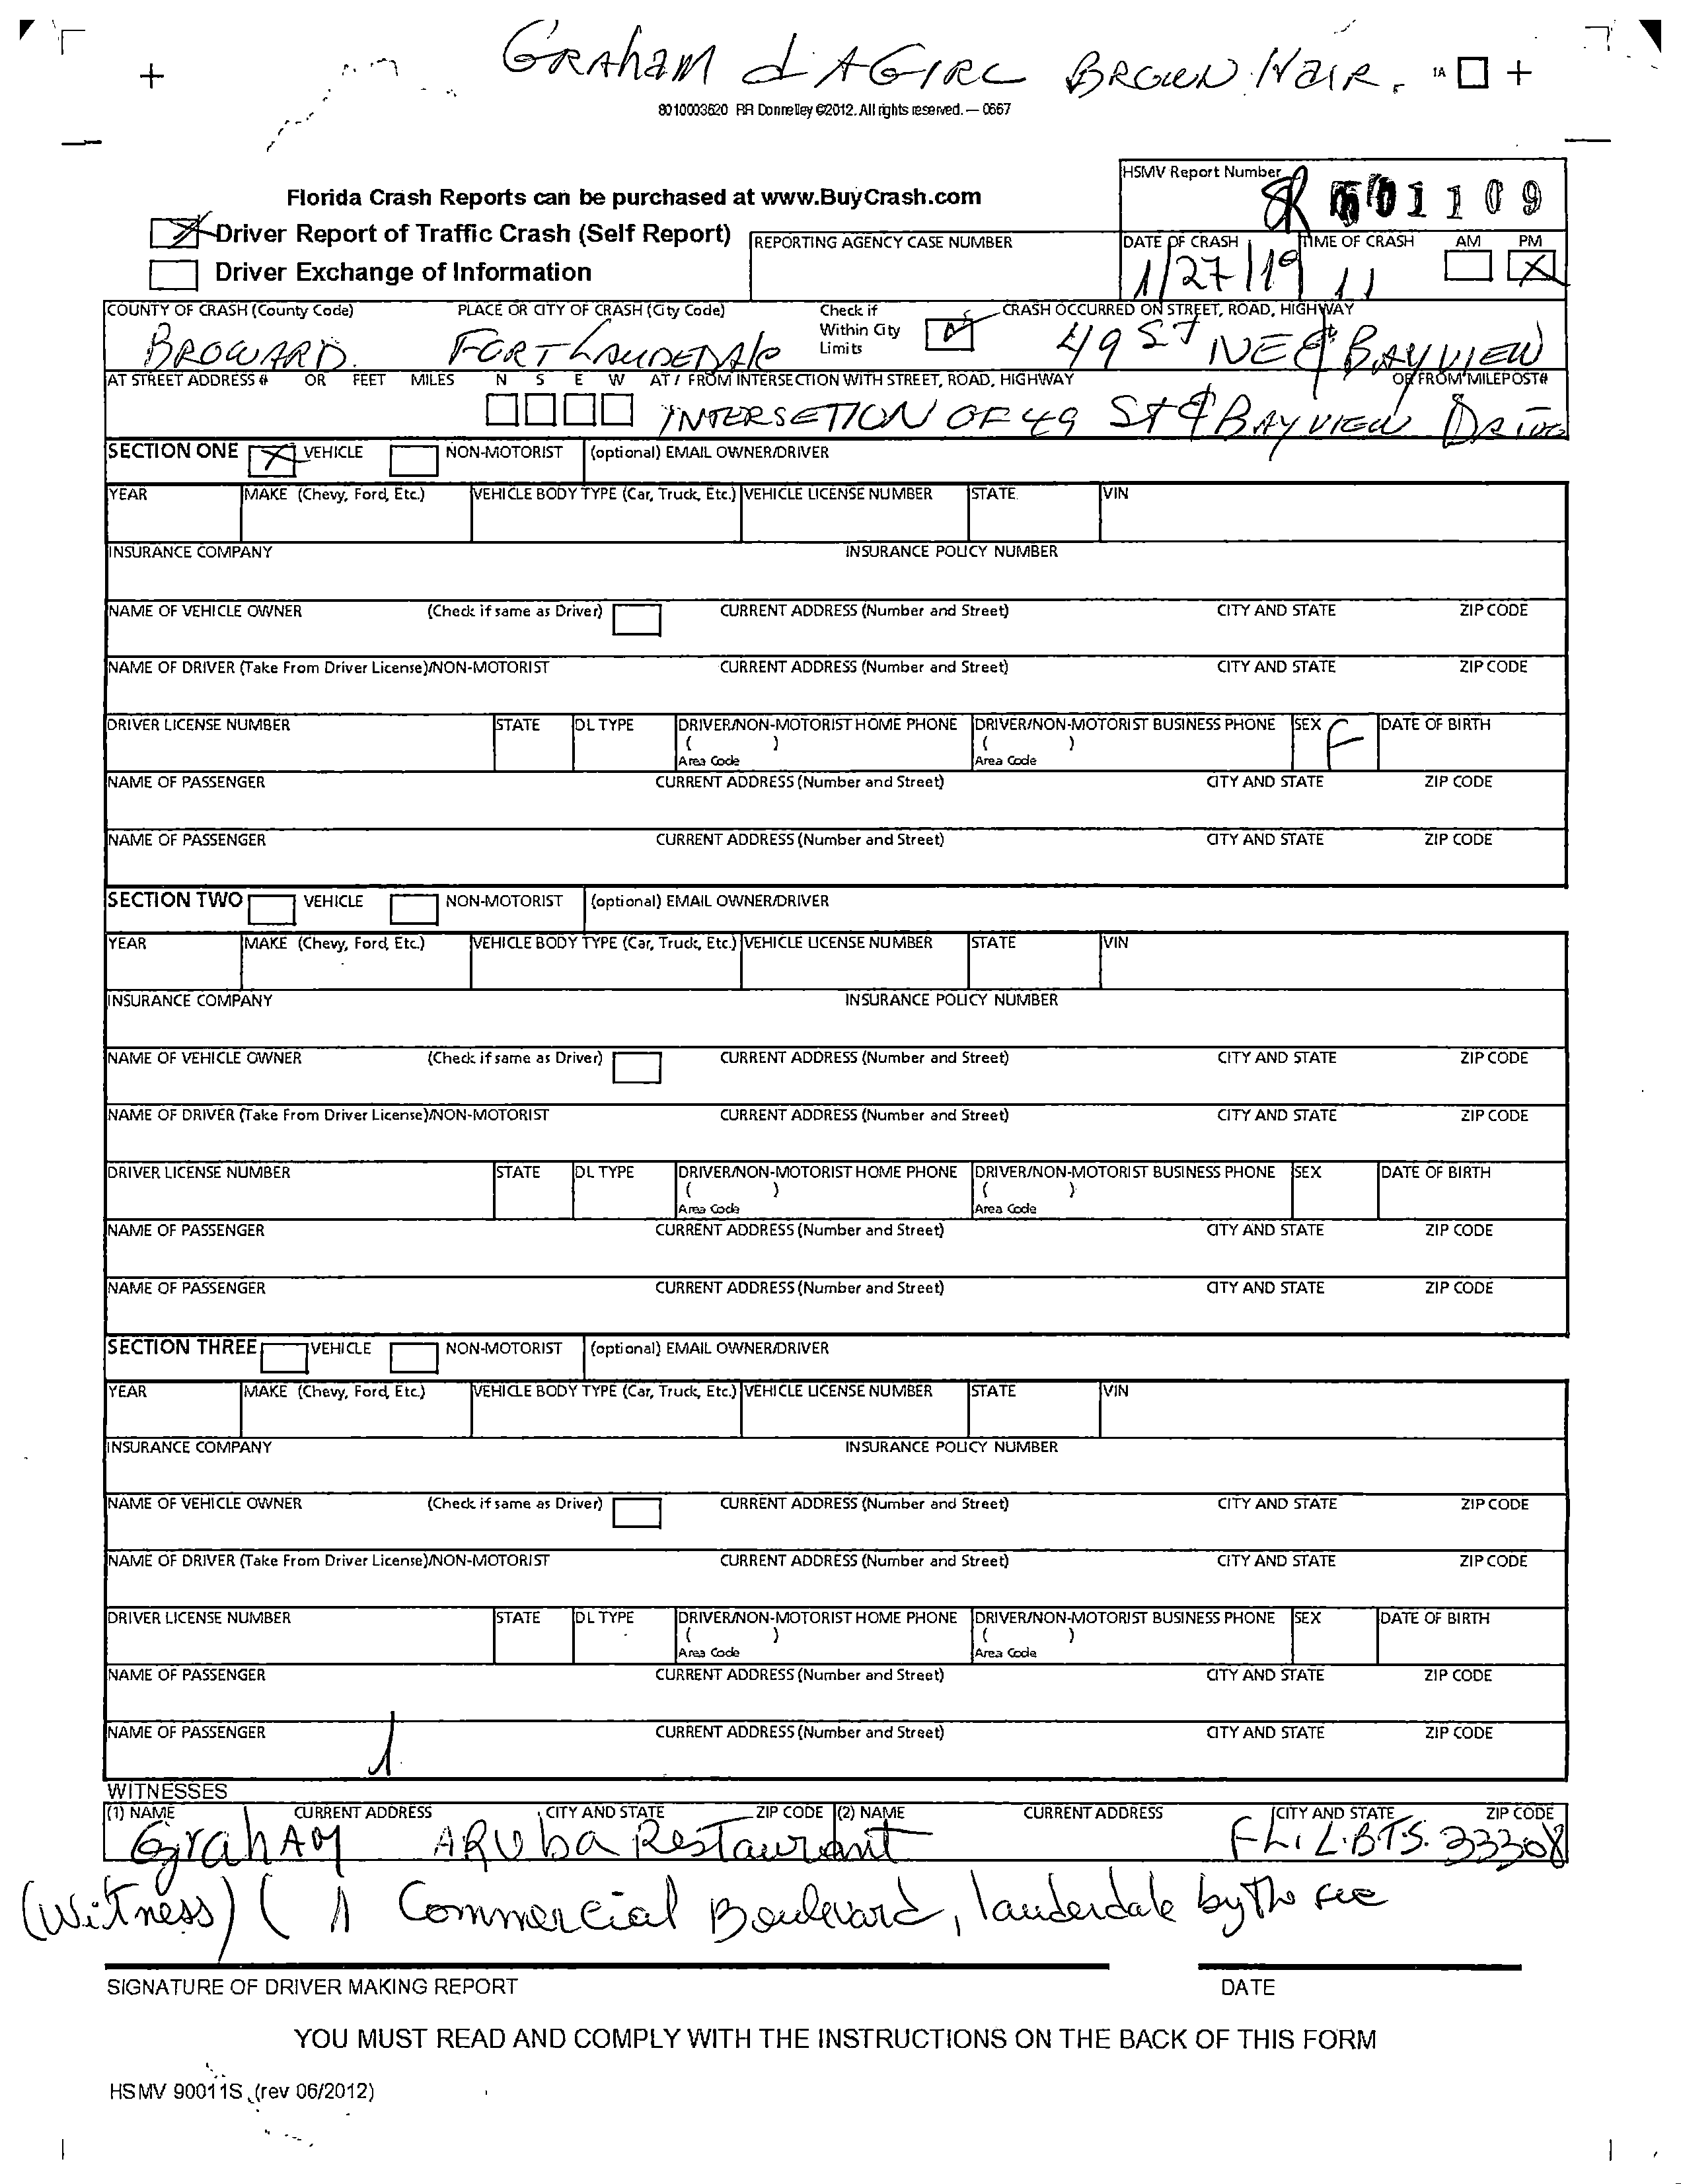 GRAHAM & A GIRL BROWN HAIR.
1A
8010003620 RR Donnelley ©2012. All rights reserved. — 0667
Florida Crash Reports can be purchased at www.BuyCrash.com
HSMV Report Number
01109
X Driver Report of Traffic Crash (Self Report)
Driver Exchange of Information
REPORTING AGENCY CASE NUMBER
DATE OF CRASH TIME OF CRASH AM PM
1/27/19 11 X
COUNTY OF CRASH (County Code) PLACE OR CITY OF CRASH (City Code) Check if Within City Limits CRASH OCCURRED ON STREET, ROAD, HIGHWAY
BROWARD. FORT LAUDEDALE 49 ST NE & BAYVIEW
AT STREET ADDRESS # OR FEET MILES N S E W AT / FROM INTERSECTION WITH STREET, ROAD, HIGHWAY OR FROM MILEPOST#
INTERSETION OF 49 ST & BAYVIEW DRIVE
SECTION ONE X VEHICLE NON-MOTORIST (optional) EMAIL OWNER/DRIVER
YEAR MAKE (Chevy, Ford, Etc.) VEHICLE BODY TYPE (Car, Truck, Etc.) VEHICLE LICENSE NUMBER STATE VIN
INSURANCE COMPANY INSURANCE POLICY NUMBER
NAME OF VEHICLE OWNER (Check if same as Driver) CURRENT ADDRESS (Number and Street) CITY AND STATE ZIP CODE
NAME OF DRIVER (Take From Driver License)/NON-MOTORIST CURRENT ADDRESS (Number and Street) CITY AND STATE ZIP CODE
DRIVER LICENSE NUMBER STATE DL TYPE DRIVER/NON-MOTORIST HOME PHONE DRIVER/NON-MOTORIST BUSINESS PHONE SEX F DATE OF BIRTH
( ) ( )
Area Code Area Code
NAME OF PASSENGER CURRENT ADDRESS (Number and Street) CITY AND STATE ZIP CODE
NAME OF PASSENGER CURRENT ADDRESS (Number and Street) CITY AND STATE ZIP CODE
SECTION TWO VEHICLE NON-MOTORIST (optional) EMAIL OWNER/DRIVER
YEAR MAKE (Chevy, Ford, Etc.) VEHICLE BODY TYPE (Car, Truck, Etc.) VEHICLE LICENSE NUMBER STATE VIN
INSURANCE COMPANY INSURANCE POLICY NUMBER
NAME OF VEHICLE OWNER (Check if same as Driver) CURRENT ADDRESS (Number and Street) CITY AND STATE ZIP CODE
NAME OF DRIVER (Take From Driver License)/NON-MOTORIST CURRENT ADDRESS (Number and Street) CITY AND STATE ZIP CODE
DRIVER LICENSE NUMBER STATE DL TYPE DRIVER/NON-MOTORIST HOME PHONE DRIVER/NON-MOTORIST BUSINESS PHONE SEX DATE OF BIRTH
( ) ( )
Area Code Area Code
NAME OF PASSENGER CURRENT ADDRESS (Number and Street) CITY AND STATE ZIP CODE
NAME OF PASSENGER CURRENT ADDRESS (Number and Street) CITY AND STATE ZIP CODE
SECTION THREE VEHICLE NON-MOTORIST (optional) EMAIL OWNER/DRIVER
YEAR MAKE (Chevy, Ford, Etc.) VEHICLE BODY TYPE (Car, Truck, Etc.) VEHICLE LICENSE NUMBER STATE VIN
INSURANCE COMPANY INSURANCE POLICY NUMBER
NAME OF VEHICLE OWNER (Check if same as Driver) CURRENT ADDRESS (Number and Street) CITY AND STATE ZIP CODE
NAME OF DRIVER (Take From Driver License)/NON-MOTORIST CURRENT ADDRESS (Number and Street) CITY AND STATE ZIP CODE
DRIVER LICENSE NUMBER STATE DL TYPE DRIVER/NON-MOTORIST HOME PHONE DRIVER/NON-MOTORIST BUSINESS PHONE SEX DATE OF BIRTH
( ) ( )
Area Code Area Code
NAME OF PASSENGER CURRENT ADDRESS (Number and Street) CITY AND STATE ZIP CODE
NAME OF PASSENGER CURRENT ADDRESS (Number and Street) CITY AND STATE ZIP CODE
WITNESSES
(1) NAME CURRENT ADDRESS CITY AND STATE ZIP CODE (2) NAME CURRENT ADDRESS CITY AND STATE ZIP CODE
Graham Aruba Restaurant FL. L.B.T.S. 33308
(Witness) ( 1 Commercial Boulevard, lauderdale by the see
SIGNATURE OF DRIVER MAKING REPORT DATE
YOU MUST READ AND COMPLY WITH THE INSTRUCTIONS ON THE BACK OF THIS FORM
HSMV 90011S (rev 06/2012)